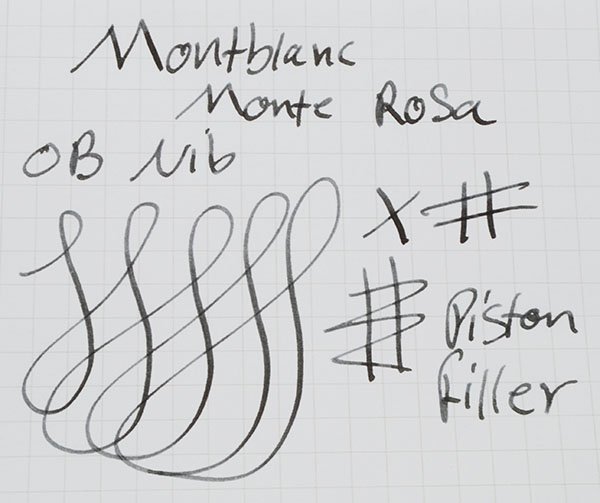 Montblanc
Monte Rosa
OB Nib
X #
# Piston
filler